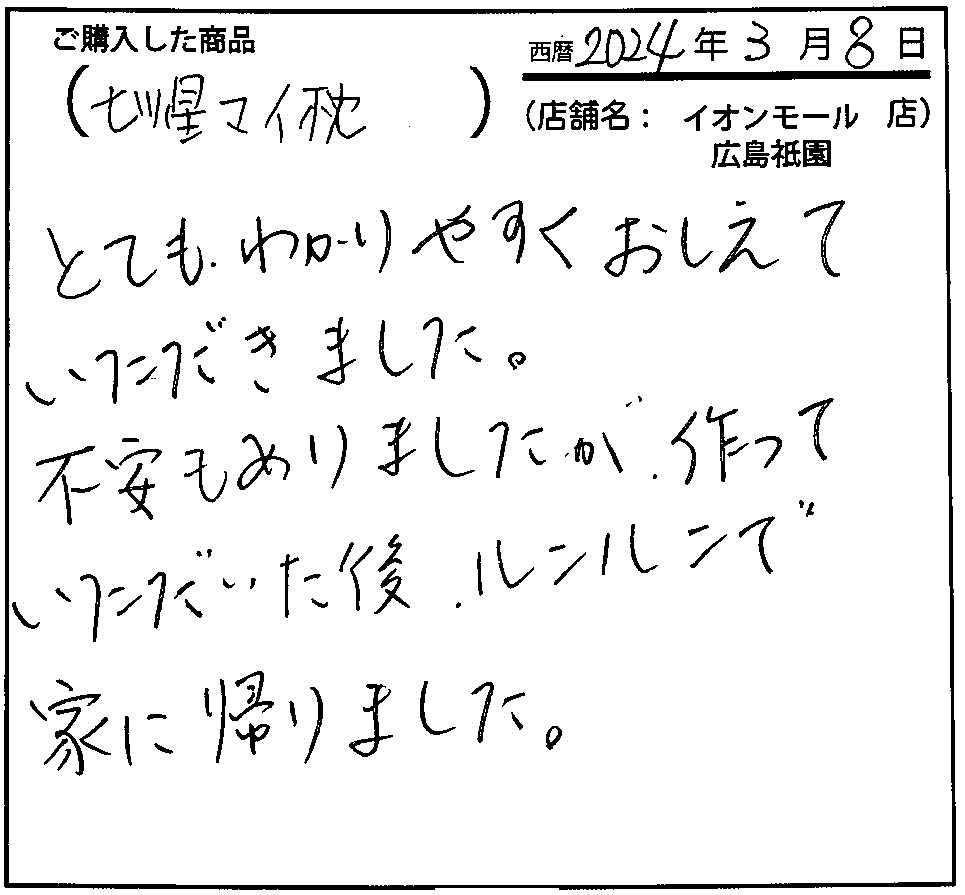 ご購入した商品
西暦2024年3月8日
(七ツ星マイ枕)
(店舗名: イオンモール 店)
広島祇園
とても、わかりやすくおしえて
いただきました。
不安もありましたが、作って
いただいた後、ルンルンで
家に帰りました。